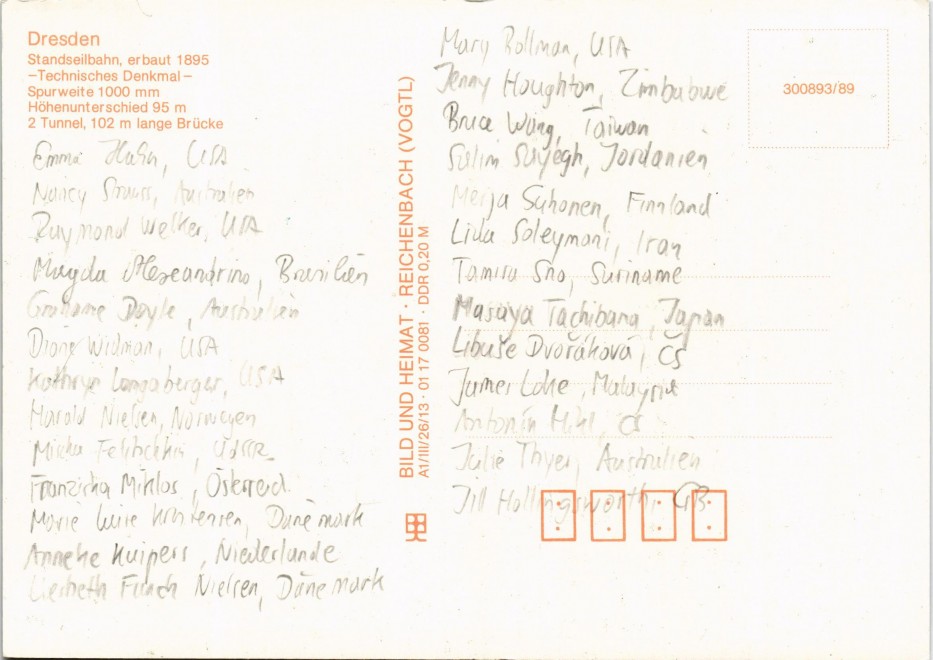 Dresden
Standseilbahn, erbaut 1895
–Technisches Denkmal–
Spurweite 1000 mm
Höhenunterschied 95 m
2 Tunnel, 102 m lange Brücke
Emma Hahn, USA
Nancy Strauss, Australien
Raymond Welker, USA
Magda Alexeandrino, Brasilien
Grahame Doyle, Australien
Diane Widman, USA
Kathryn Langaberger, USA
Harald Nielsen, Norwegen
ČSSR
Franziska Miklos, Österreich
Marie Luise Dänemark
Anneke Kuipers, Niederlande
Liesbeth Finch Nielsen, Dänemark
BILD UND HEIMAT · REICHENBACH (VOGTL)
A1/III/26/13 · 01 17 0081 · DDR 0,20 M
Mary Bollman, USA
Jenny Houghton, Zimbabwe
Bruce Wang, Taiwan
Salim Sayegh, Jordanien
Merja Suhonen, Finnland
Lida Soleymani, Iran
Tamira Sno, Suriname
Masaya Tachibana, Japan
Libuše Dvořáková, ČS
James Loke, Malaysia
Antonín ČS
Julie Thyer, Australien
Jill Hollingsworth, GB
300893/89